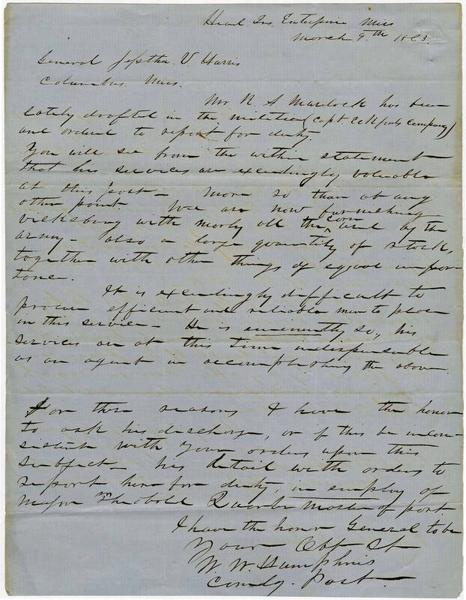 Head Qrs Enterprise Miss
March 9th 1863
General Jeptha V Harris
Columbus Miss.
Mr N. S. Murdock has been
lately drafted in the militia (Capt Company)
and ordered to report for duty.
You will see from the within statement
that his services are exceedingly valuable
at this post – more so than at any
other point We are now furnishing
Vicksburg with nearly all the corn used by the
army – also a large quantity of stock,
together with other things of equal impor
tance.
It is exceedingly difficult to
procure efficient and reliable men to place
in this service – He is eminently so, his
services are at this time indispensable
as an agent in accomplishing the above.
For these reasons I have the honor
to ask his discharge, or if this be incon-
sistent with your orders upon this
subject – his detail with orders to
report here for duty, in employ of
Major Theobold Quarter Master of post
I have the honor General to be
Your Obt St
W. W. Humphris
Comdg. Post.